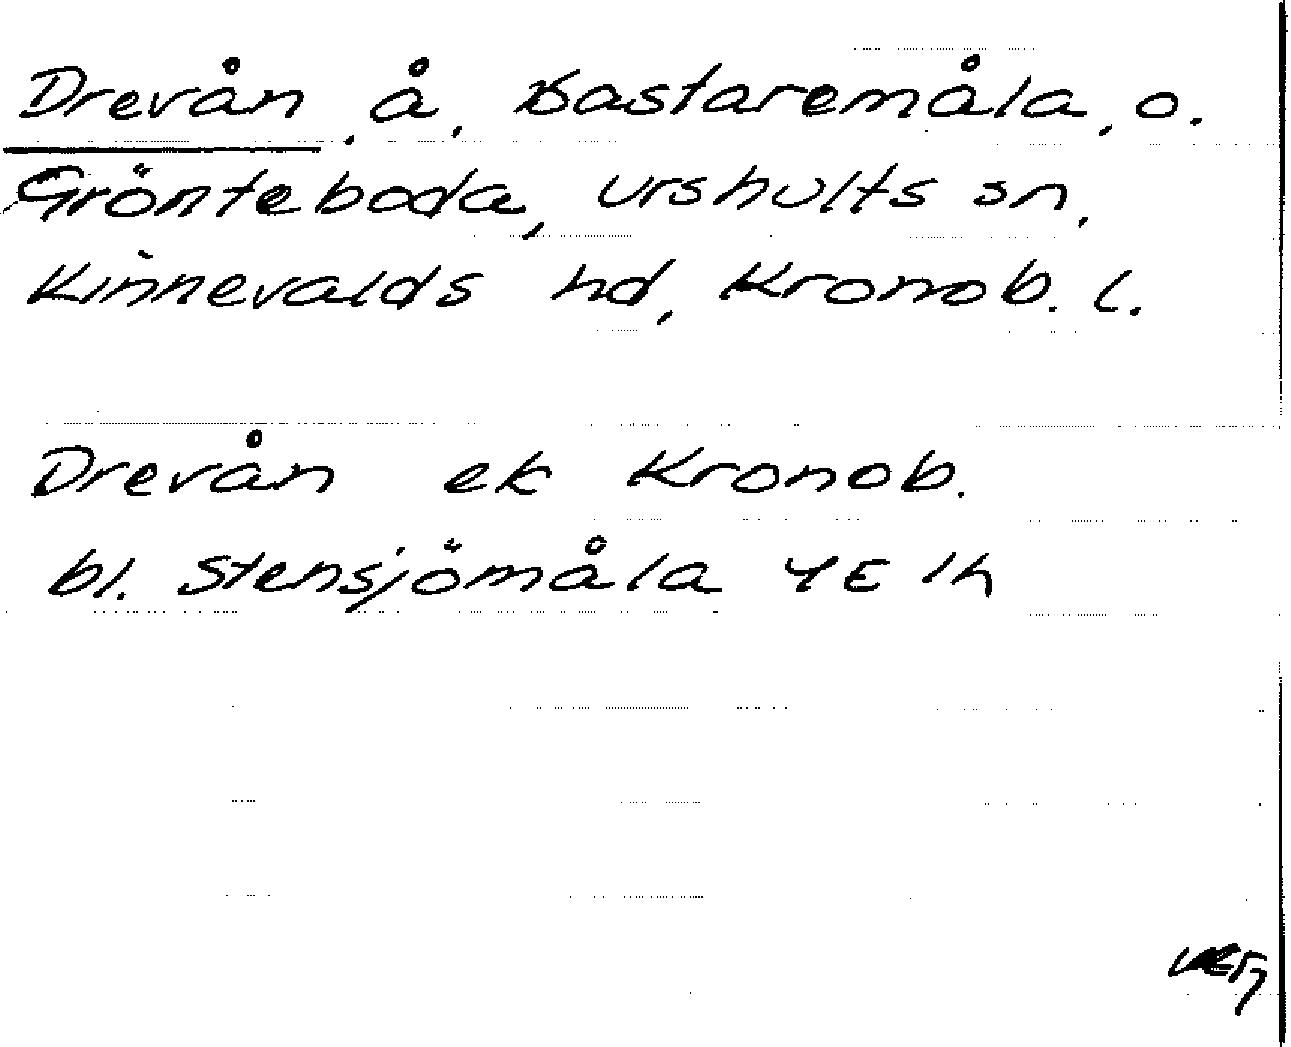 Drevån, å, Bastaremåla, o.
Grönteboda, Urshults sn,
Kinnevalds hd, Kronob. l.
Drevån ek Kronob.
bl. Stensjömåla 4E 1h